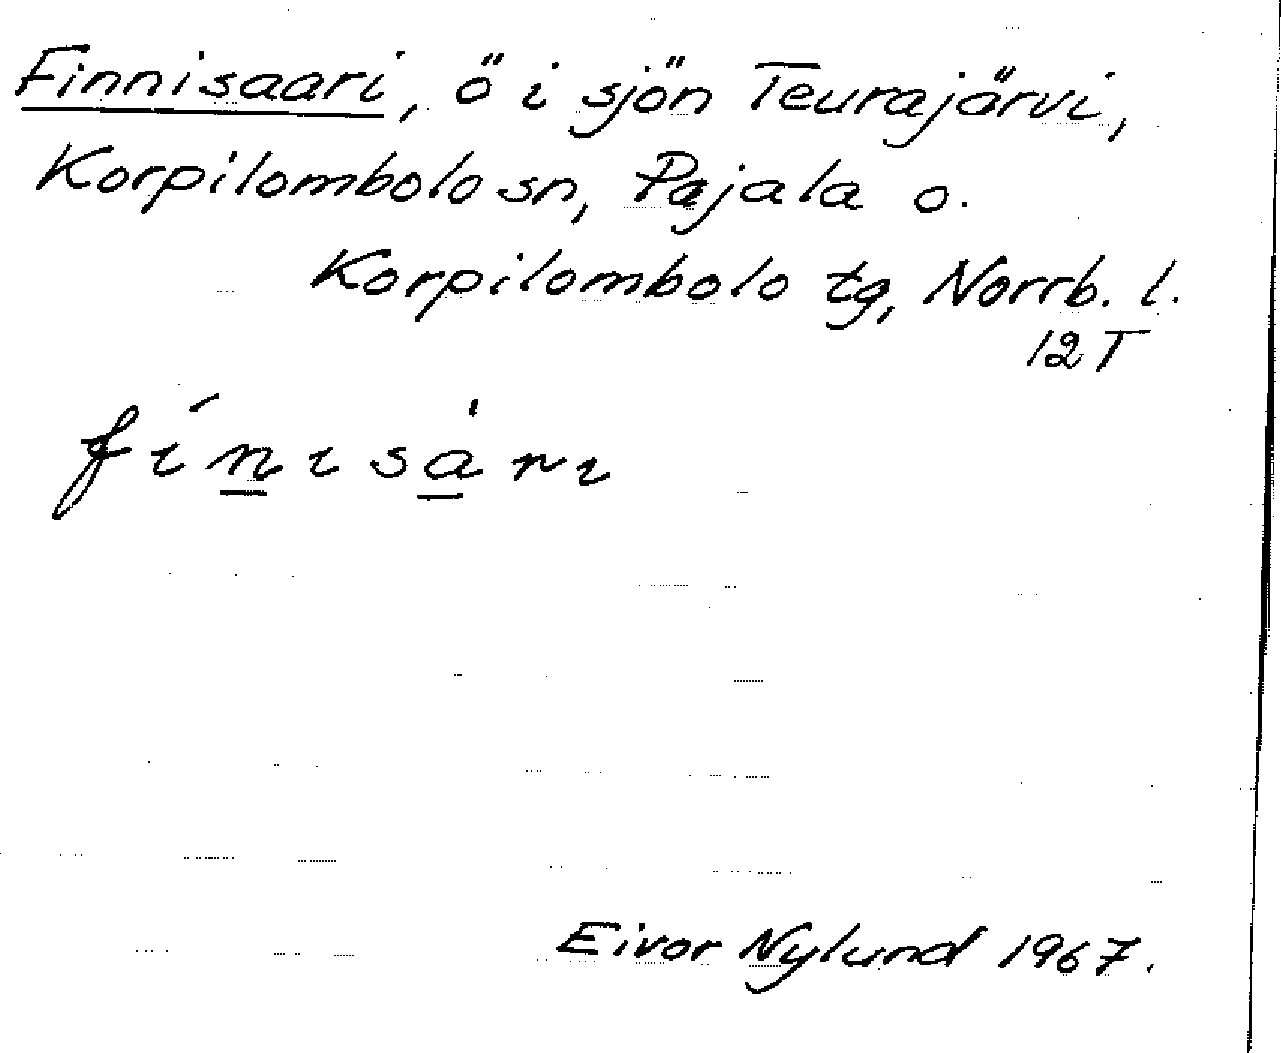 Finnisaari, ö i sjön Teurajärvi,
Korpilombolo sn, Pajala o.
Korpilombolo tg, Norrb. l.
12T
fí̱nisȧ̱ri
Eivor Nylund 1967.